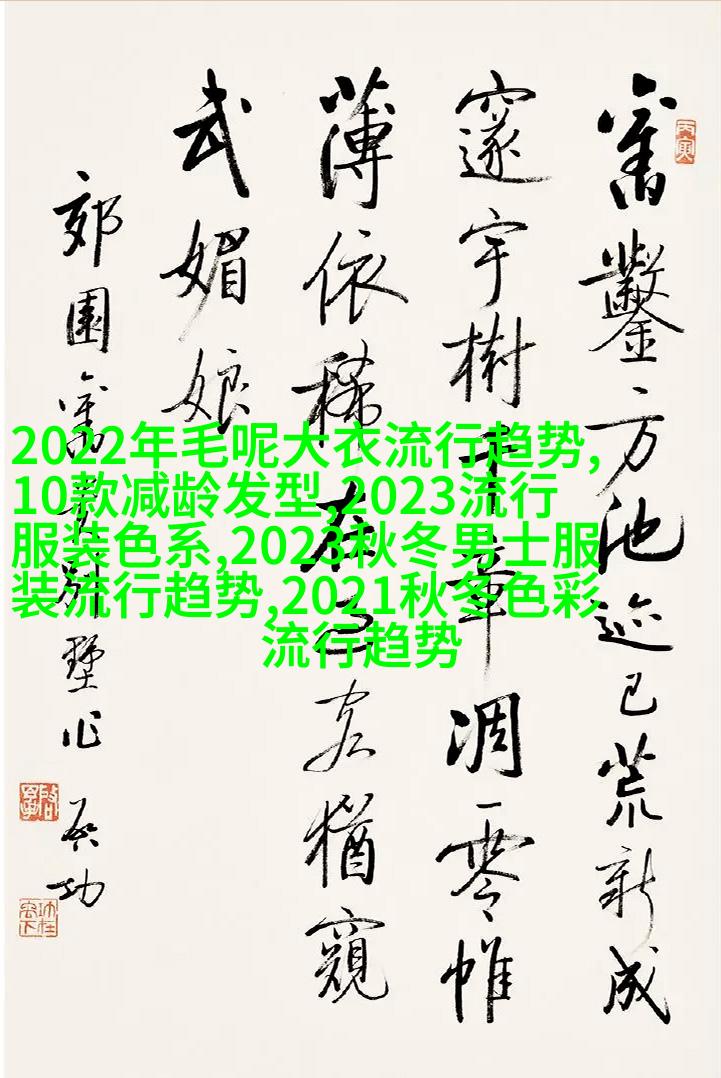 丙寅
舊鑿方池迹已荒新成
邃宇樹千章凋零帷
薄依稀在客猶窺
武媚娘
郊園舊別墅作 啟功
2022年毛呢大衣流行趋势,
10款减龄发型,2023流行
服装色系,2023秋冬男士服
装流行趋势,2021秋冬色彩
流行趋势